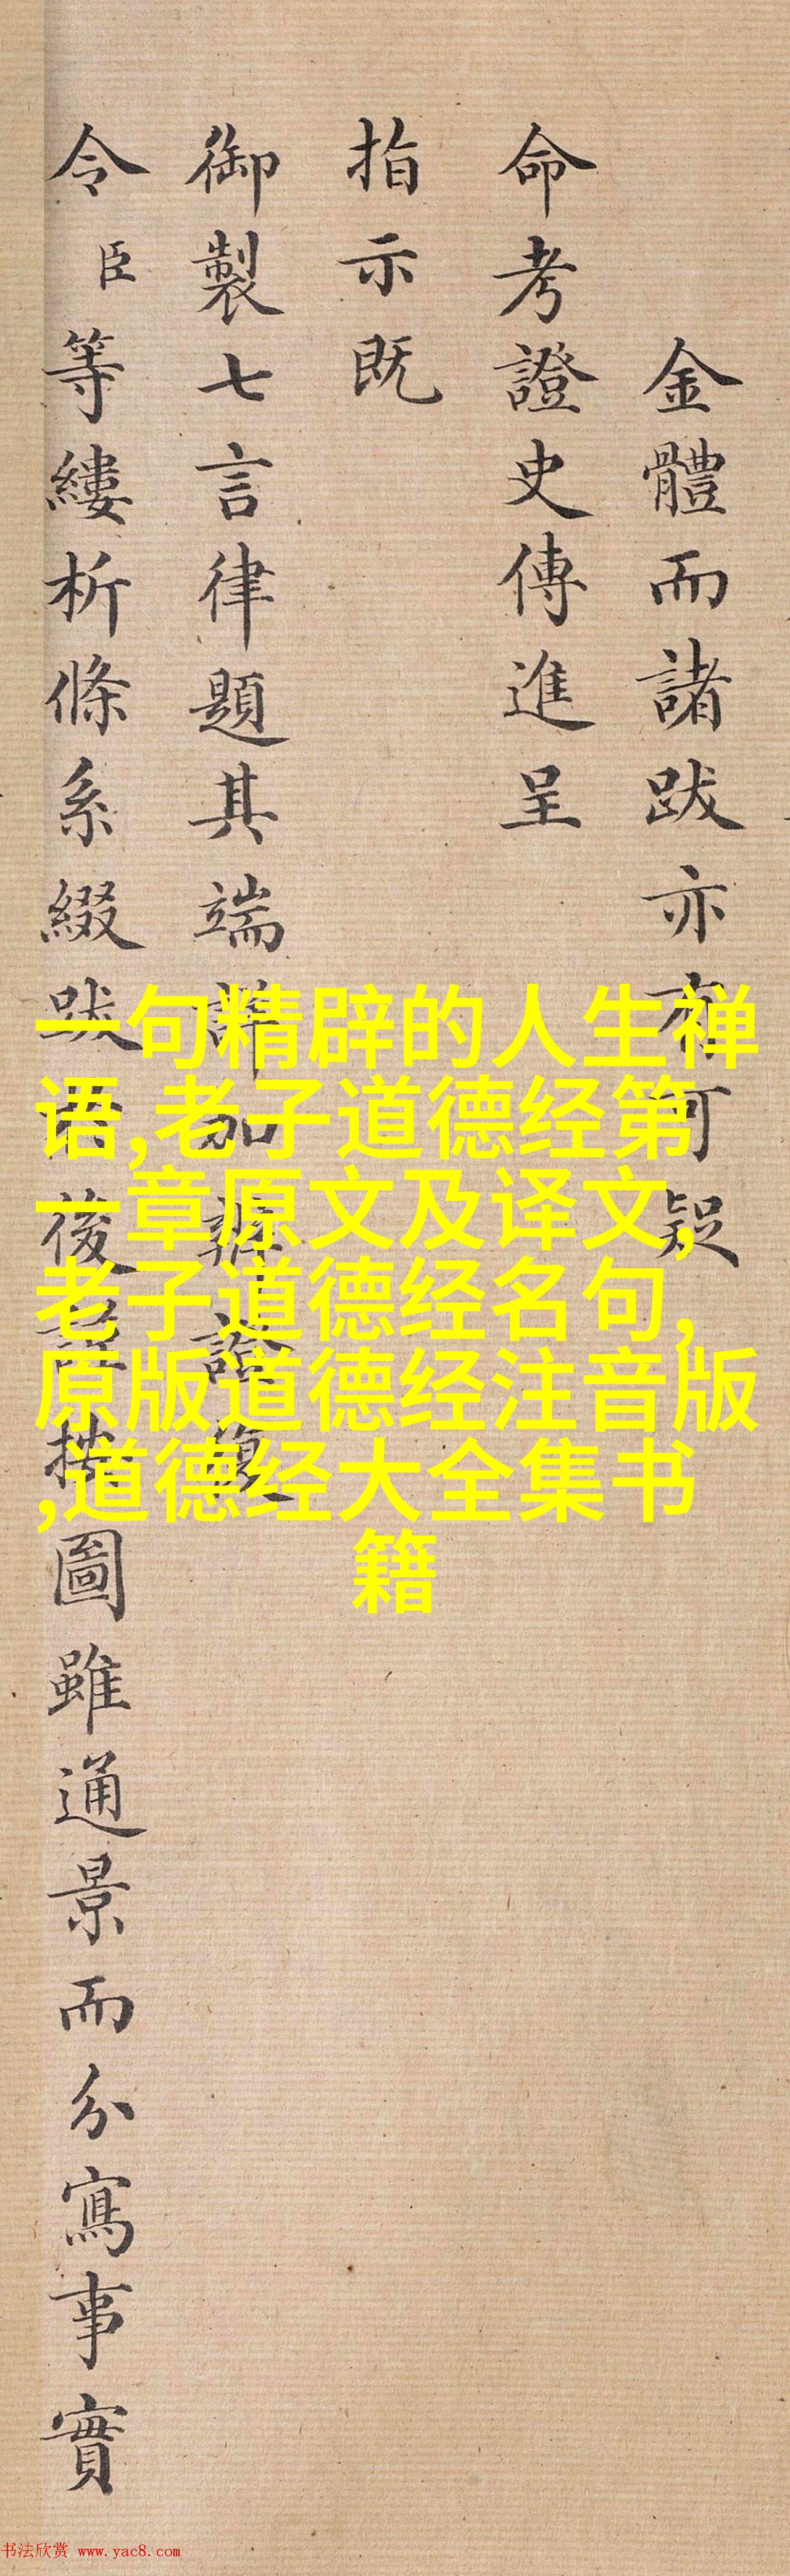 金體而諸跋亦有可疑
命考證史傳進呈
指示既
御製七言律題其端詳加辨證復
令臣等縷析條系綴跋語後
圖雖通景而分寫事實
一句精辟的人生禅
语,老子道德经第
一章原文及译文,
老子道德经名句,
原版道德经注音版
,道德经大全集书
籍
书法欣赏 www.yac8.com